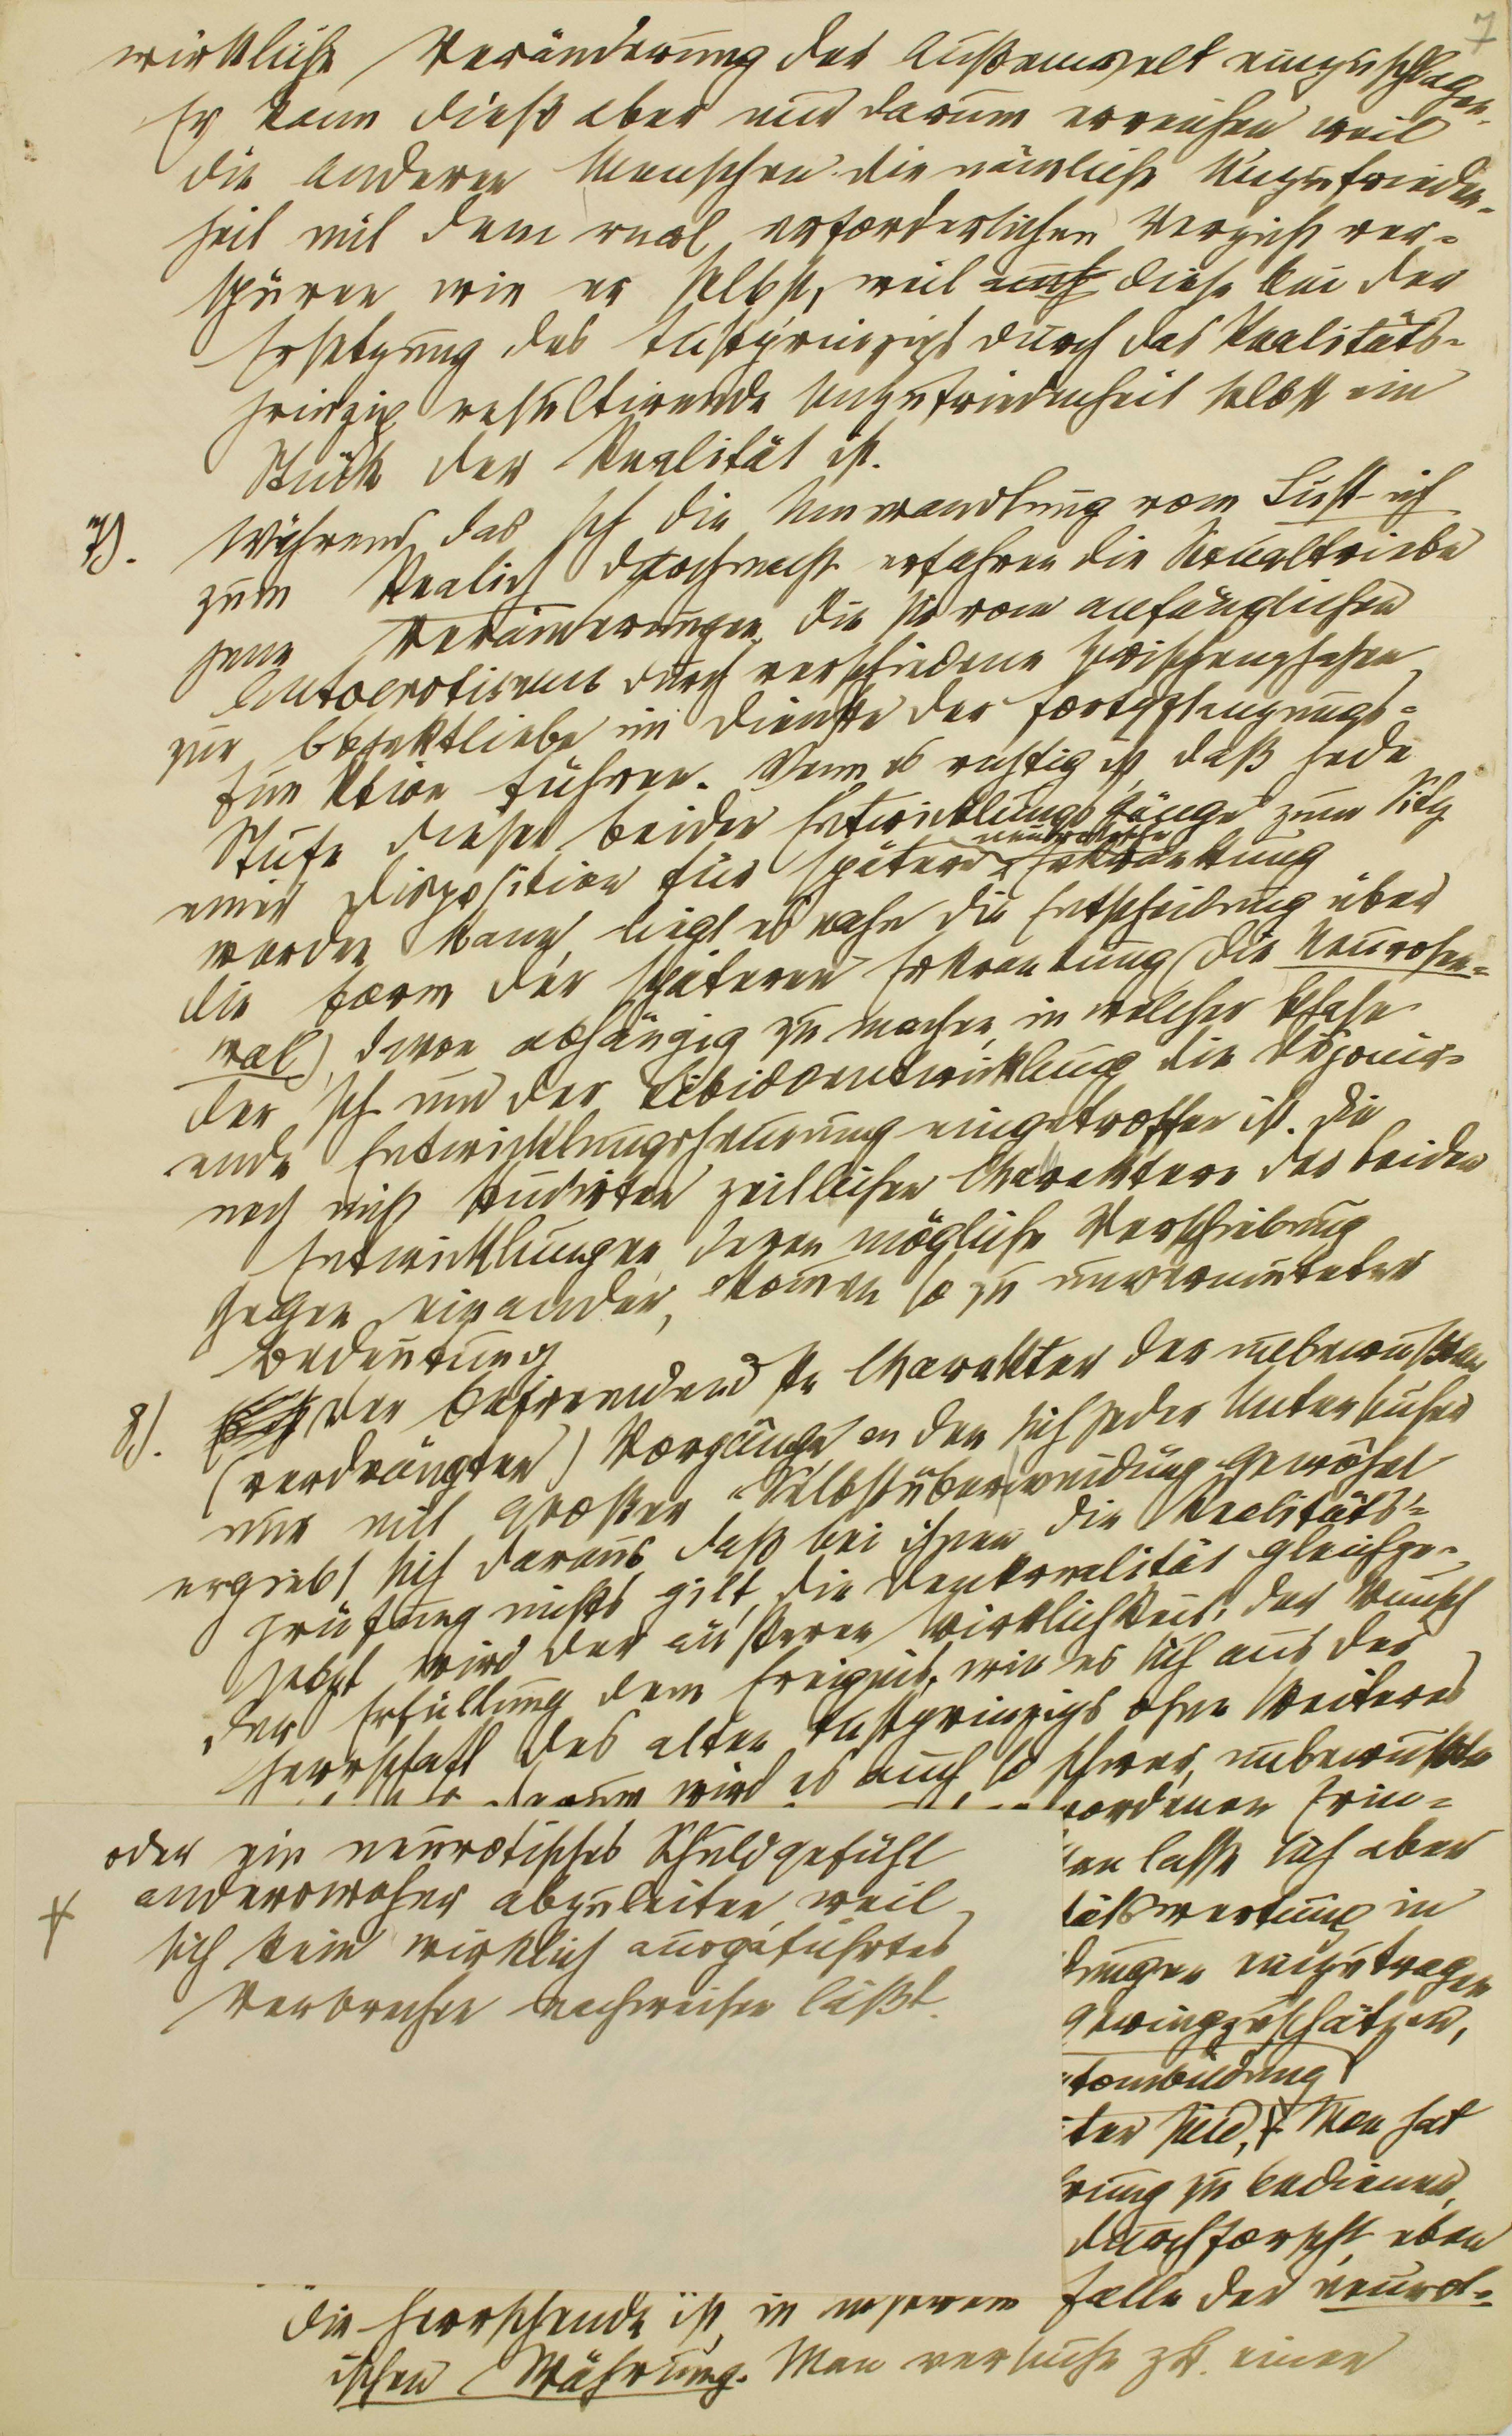 7
wirkliche Veränderung der Außenwelt einzuschlagen.
Er kann dieß aber nur darum erreichen weil
die anderen Menschen die nämliche Unzufrieden-
heit mit dem real erforderlichen Verzicht ver-
spüren wie er selbst, weil auch diese bei der
Ersetzung des Lustprinzips durch das Realitäts-
prinzip resultirende Unzufriedenheit selbst ein
Stück der Realität ist.
7). Während das Ich die Umwandlung vom Lust-ich
zum Realich durchmacht erfahren die Sexualtriebe
jene Veränderungen, die sie vom anfänglichen
Autoerotismus durch verschiedene Zwischenphasen
zur Objektliebe im Dienste der Fortpflanzungs-
funktion führen. Wenn es richtig ist, daß jede
Stufe dieser beiden Entwicklungsgänge zum Sitz
neurotische
einer Disposition für spätere Erkrankung
werden kann, liegt es nahe die Entscheidung über
die Form der späteren Erkrankung (die Neurosen-
wal), davon abhängig zu machen, in welcher Phase
der Ich und der Libidoentwicklung die disponir-
ende Entwicklungshemmung eingetroffen ist. Die
noch nicht studirten zeitlichen Charaktere der beiden
Entwicklungen, deren mögliche Verschiebung
gegen einander, kommen so zu unvermuteter
Bedeutung
8). Der befremdendste Charakter der unbewußten
(verdrängten) Vorgänge, an den sich jeder Untersucher
nur mit großer Selbstüberwindung gewöhnt
ergiebt sich daraus, daß bei ihnen die Realitäts-
prüfung nichts gilt, die Denkrealität gleichge-
setzt wird der äußeren Wirklichkeit, der Wunsch
der Erfüllung dem Ereignis, wie es sich aus der
Herrschaft des alten Lustprinzips ohne Weiteres
darum wird es auch so schwer, unbewußte
wordenen Erin-
en lasse sich aber
tätswertung in
dungen einzutragen
geringzuschätzen,
tombildung
ter sind, + Man hat
rung zu bedienen,
durchforscht, eben
oder ein neurotisches Schuldgefühl
+ anderswoher abzuleiten, weil
sich kein wirklich ausgeführtes
Verbrechen nachweisen läßt.
die herrschende ist, in unserem Falle der neurot-
ischen Währung. Man versuche zB. einen